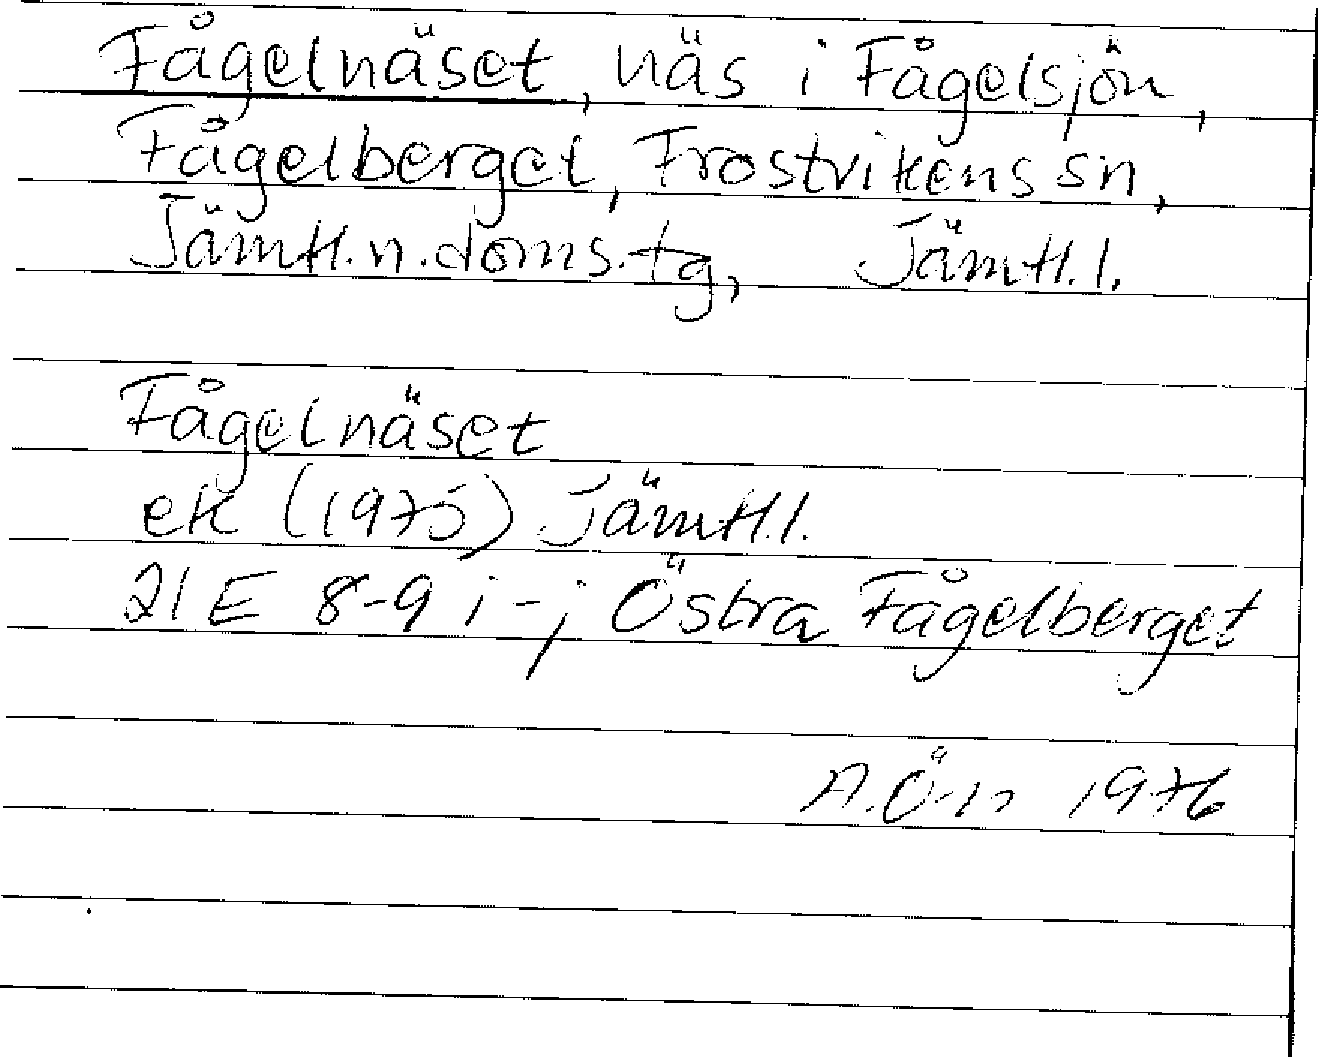 Fågelnäset, näs i Fågelsjön,
Fågelberget, Frostvikens sn,
Jämtl.n.doms.tg, Jämtl.l.
Fågelnäset
ek (1975) Jämtl.l.
21 E 8-9 i-j Östra Fågelberget
A.Ö-n 1976